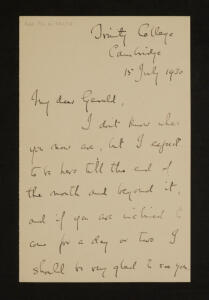 Trinity College
Cambridge
15 July 1930
My dear Gerald,
I don't know where
you now are, but I expect
to be here till the end of
the month and beyond it,
and if you are inclined to
come for a day or two I
should be very glad to see you